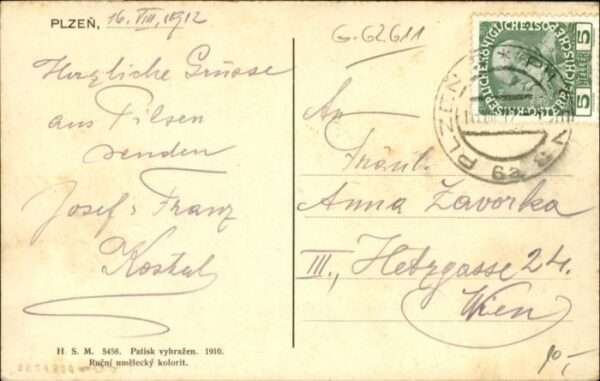 PLZEŇ, 16. VIII. 1912
G-62611
Herzliche Grüsse
aus Pilsen
senden
Josef & Franz
Koskal
An
Fräul.
Anna Zavorka
III., Hetzgasse 24.
Wien
H. S. M. 5456. Patisk vyhražen. 1910.
Ruční umělecký kolorit.
10,-
KAISERLICHE KÖNIGLICHE ÖSTERREICHISCHE POST
5 HELLER 5
PLZEŇ
6a